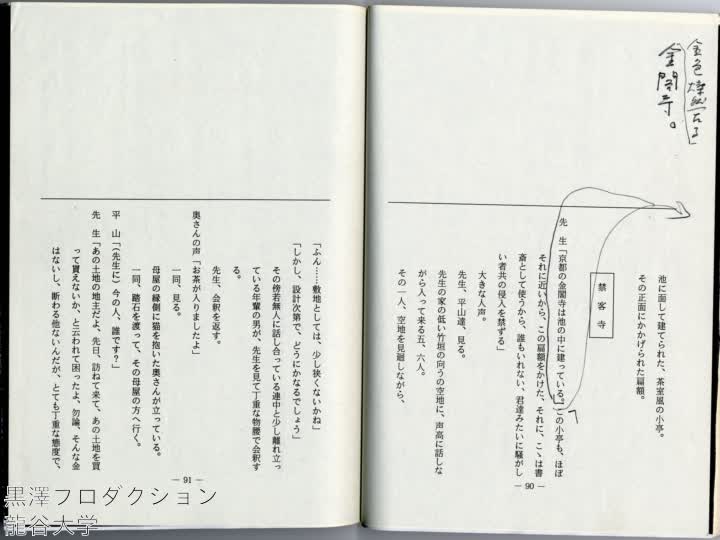 金色燦然たる
金閣寺。
池に面して建てられた、茶室風の小亭。
その正面にかかげられた扁額。
禁客寺
先　生「京都の金閣寺は池の中に建っている。この小亭も、ほぼ
それに近いから、この扁額をかけた、それに、こゝは書
斎として使うから、誰もいれない、君達みたいに騒がし
い者共の侵入を禁ずる」
大きな人声。
先生、平山達、見る。
先生の家の低い竹垣の向うの空地に、声高に話しな
がら入って来る五、六人。
その一人、空地を見廻しながら、
― 90 ―
「ふん……敷地としては、少し狭くないかね」
「しかし、設計次第で、どうにかなるでしょう」
その傍若無人に話し合っている連中と少し離れ立っ
ている年輩の男が、先生を見て丁重な物腰で会釈す
る。
先生、会釈を返す。
奥さんの声「お茶が入りましたよ」
一同、見る。
母屋の縁側に猫を抱いた奥さんが立っている。
一同、踏石を渡って、その母屋の方へ行く。
平　山「(先生に) 今の人、誰です？」
先　生「あの土地の地主だよ、先日、訪ねて来て、あの土地を買
って貰えないか、と云われて困ったよ、勿論、そんな金
はないし、断わる他ないんだが、とても丁重な態度で、
― 91 ―
黒澤プロダクション
龍谷大学